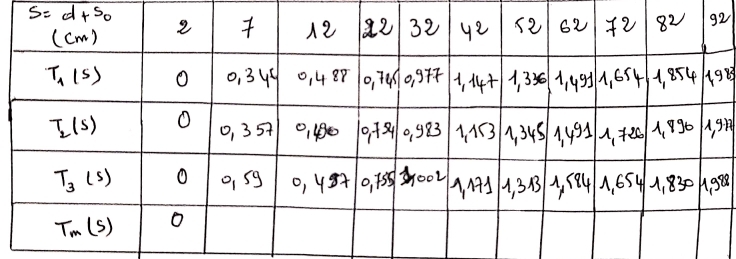 S= d+S₀ (cm) 2 7 12 22 32 42 52 62 72 82 92
T₁ (s) 0 0,346 0,488 0,745 0,977 1,147 1,336 1,491 1,654 1,854 1,983
T₂(s) 0 0,357 0,490 0,754 0,983 1,153 1,345 1,491 1,726 1,890 1,977
T₃ (s) 0 0,59 0,497 0,755 1,002 1,171 1,313 1,584 1,654 1,830 1,988
Tm (s) 0